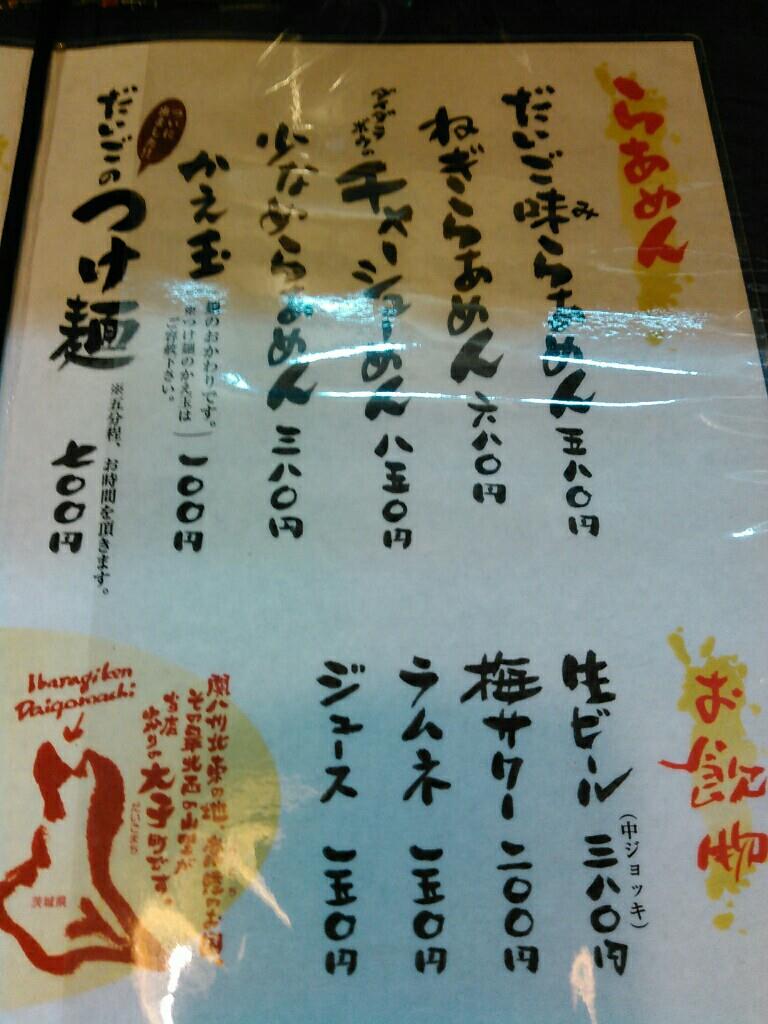 らあめん
だいご味らあめん 五八〇円
み
ねぎらあめん 六八〇円
ダイダラ
ボウの
チャーシューめん 八五〇円
少なめらあめん 三八〇円
かえ玉
のおかわりです。
※つけ麺のかえ玉は
ご容赦下さい。
一〇〇円
つけに
だいごのつけ麺
※五分程、お時間を頂きます。
七〇〇円
お飲物
生ビール 三八〇円
(中ジョッキ)
梅サワー 二〇〇円
ラムネ 一五〇円
ジュース 一五〇円
関八州北東の地、
その最北西の山里が
当店
の大子町です。
だいごまち
Ibaragiken
Daigomachi
茨城県